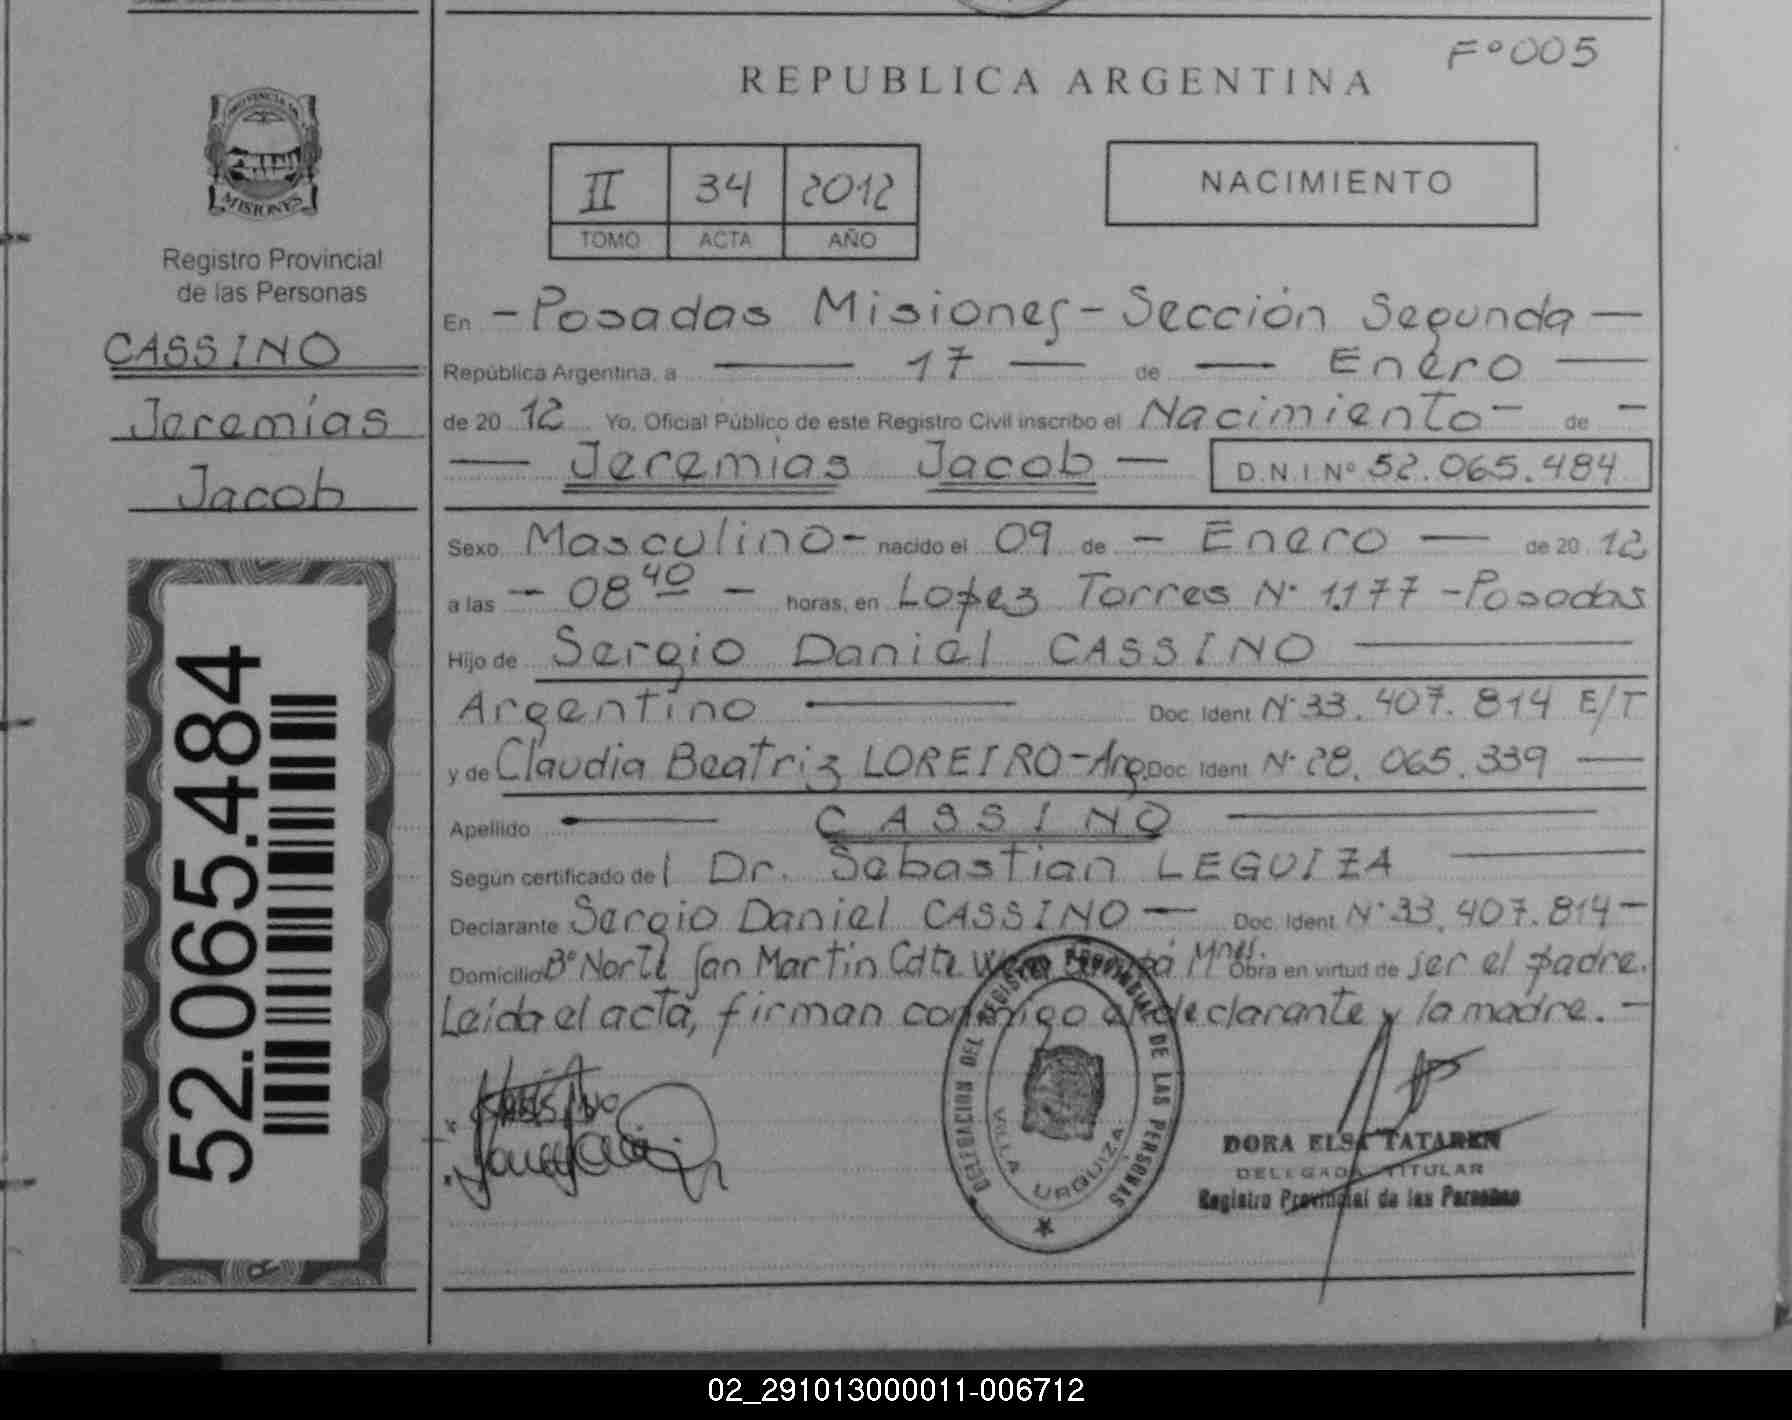 Fº 005
REPUBLICA ARGENTINA
II 34 2012
TOMO ACTA AÑO
NACIMIENTO
PROVINCIA DE
MISIONES
Registro Provincial
de las Personas
CASSINO
Jeremías
Jacob
52.065.484
En - Posadas Misiones - Sección Segunda —
República Argentina, a — 17 — de — Enero —
de 20 12 Yo, Oficial Público de este Registro Civil inscribo el Nacimiento - de -
— Jeremias Jacob — D.N.I. Nº 52.065.484
Sexo Masculino - nacido el 09 de - Enero — de 20 12
a las - 08 40 - horas, en Lopez Torres Nº 1.177 - Posadas
Hijo de Sergio Daniel CASSINO —
Argentino — Doc. Ident Nº 33.407.814 E/T
y de Claudia Beatriz LOREIRO - Arg. Doc. Ident Nº 28.065.339 —
Apellido — CASSINO —
Según certificado de l Dr. Sebastian LEGUIZA —
Declarante Sergio Daniel CASSINO — Doc. Ident. Nº 33.407.814 —
Domicilio Bº Norte San Martin Cdte Mnes. Obra en virtud de ser el padre.
Leída el acta, firman conmigo el declarante y la madre. -
CASSINO
DELEGACION DEL REGISTRO PROVINCIAL DE LAS PERSONAS
VILLA URQUIZA
DORA ELSA TATAREN
DELEGADA TITULAR
Registro Provincial de las Personas
02_291013000011-006712